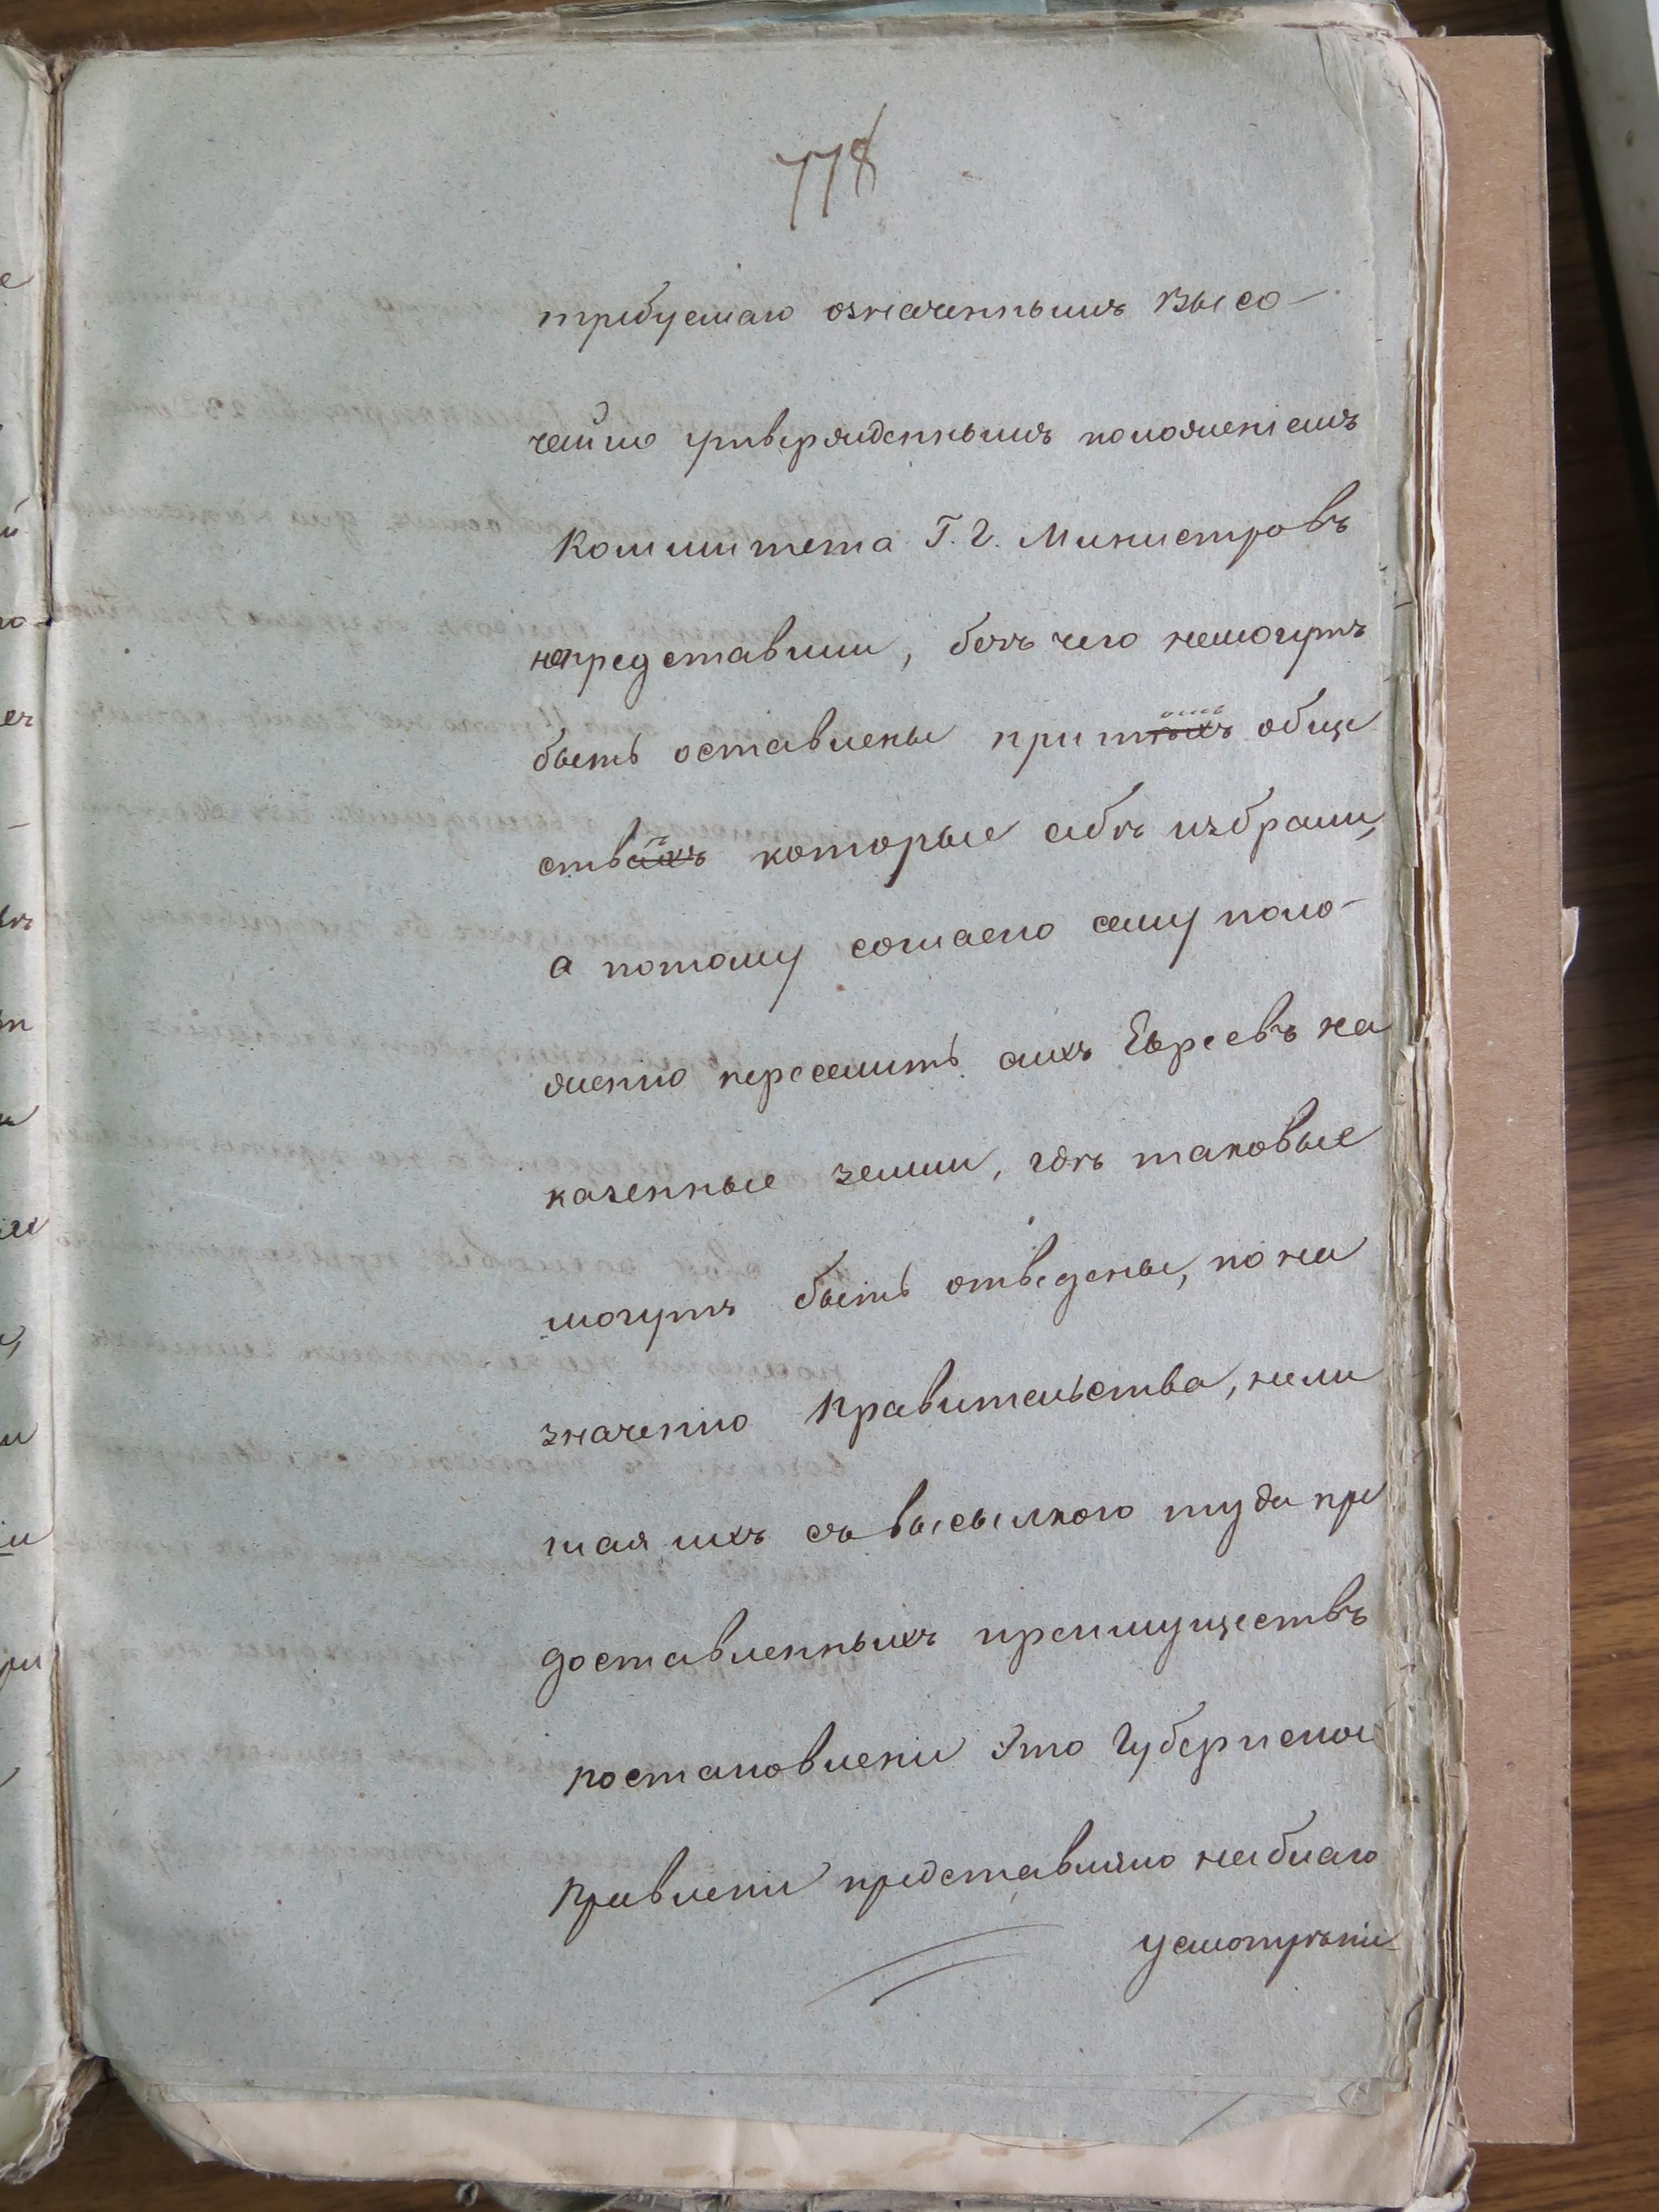 778
требуемаго означеннымъ Высо-
чайше утвержденнымъ положеніемъ
Коммитета Г.Г. Министровъ
непредставили, безъ чего немогутъ
быть оставлены при тѣхъ обще
ствахъ которые себѣ избрали,
а потому согласно сему поло-
женію переселить сихъ Евреевъ на
казенные земли, гдѣ таковые
могутъ быть отведены, по на
значенію Правительства, нели
шая ихъ съ высылкою туда пре
доставленныхъ преимуществъ
постановленіе Это Губернское
Правленіе представляло на благо
усмотрѣніе